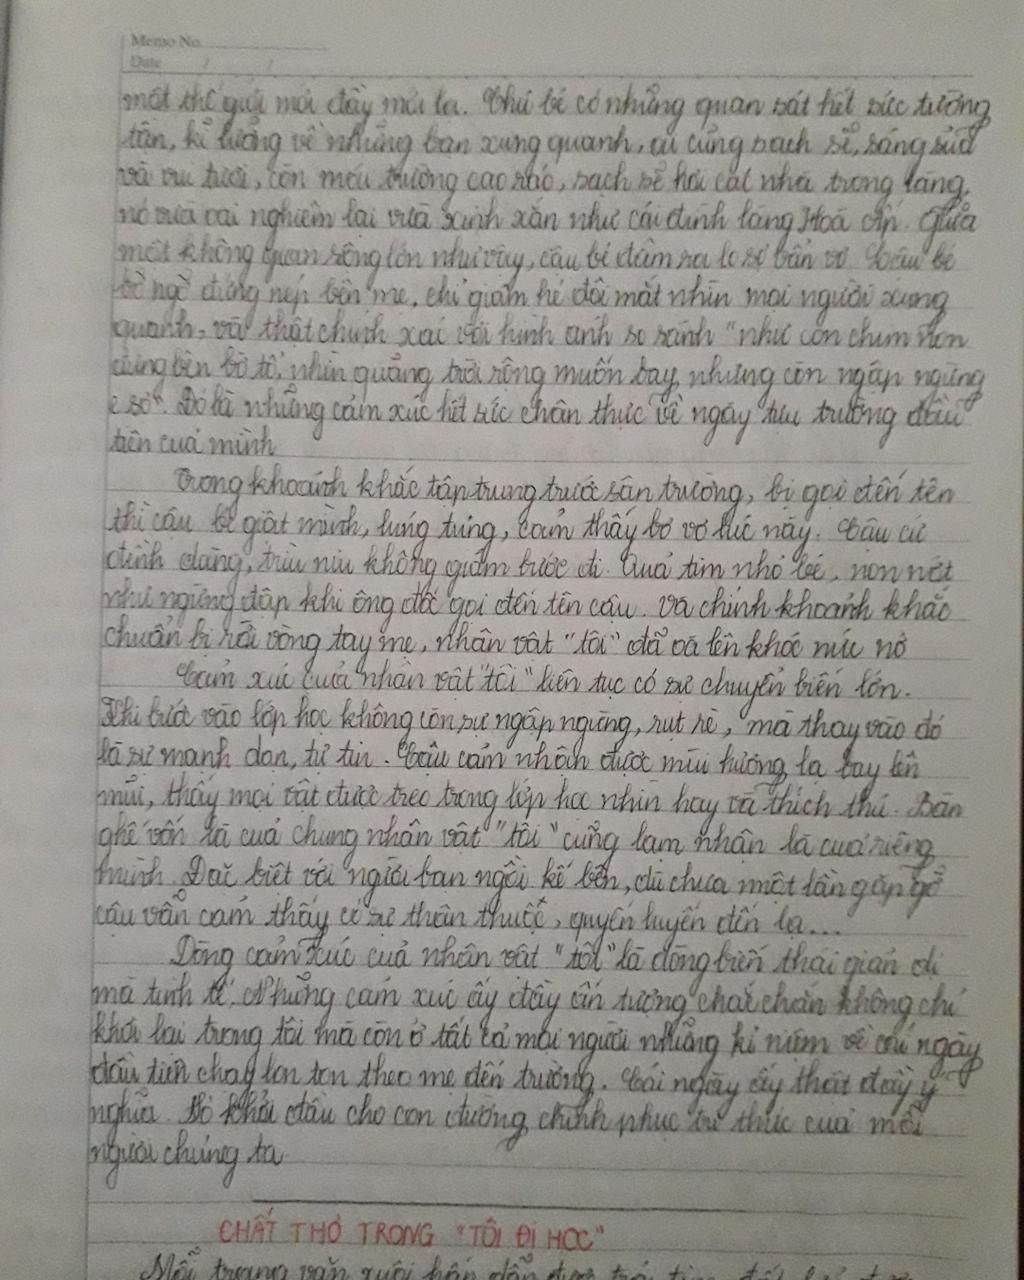 Memo No.
Date / /
một thế giới mới đầy mới lạ. Chú bé có những quan sát hết sức tường
tận, kĩ lưỡng về những bạn xung quanh, ai cũng sạch sẽ, sáng sủa
và vui tươi, còn mái trường cao ráo, sạch sẽ hơi cát nhà trong làng,
nó vừa oai nghiêm lại vừa xinh xắn như cái đình làng Hoà Ấp. Giữa
một không gian rộng lớn như vậy, cậu bé đâm ra lo sợ bẩn vơ Cậu bé
bỡ ngỡ đứng nép bên mẹ, chỉ giám hé đôi mắt nhìn mọi người xung
quanh, và thật chính xác với hình ảnh so sánh "như con chim non
đứng bên bờ tổ, nhìn quãng trời rộng muốn bay, nhưng còn ngập ngừng
e sợ". Đó là những cảm xúc hết sức chân thực về ngày tựu trường đầu
tiên của mình
Trong khoảnh khắc tập trung trước sân trường, bị gọi đến tên
thì cậu bé giật mình, lúng túng, cảm thấy bơ vơ lúc này. Cậu cứ
đình dạng, trìu níu không giám bước đi. Quả tim nhỏ bé, non nớt
như ngừng đập khi ông đốc gọi đến tên cậu. và chính khoảnh khắc
chuẩn bị rời vòng tay mẹ, nhân vật "tôi" đã oà lên khóc nức nở
Cảm xúc của nhân vật "tôi" liên tục có sự chuyển biến lớn.
Khi bước vào lớp học không còn sự ngập ngừng, rụt rè, mà thay vào đó
là sự mạnh dạn, tự tin. Cậu cảm nhận được mùi hương lạ bay lên
mũi, thấy mọi vật được treo trong lớp học nhìn hay và thích thú. Bàn
ghế vốn là của chung nhân vật "tôi" cũng lạm nhận là của riêng
mình. Đặc biệt với người bạn ngồi kế bên, dù chưa một lần gặp gỡ
cậu vẫn cảm thấy có sự thân thuộc, quyến luyến đến lạ...
Dòng cảm xúc của nhân vật "tôi" là dòng biến thái giản dị
mà tinh tế. Những cảm xúc ấy đầy ấn tượng chắc chắn không chỉ
khơi lại trong tôi mà còn ở tất cả mọi người những kỉ niệm về cái ngày
đầu tiên chạy lon ton theo mẹ đến trường. Cái ngày ấy thật đầy ý
nghĩa. Nó khởi đầu cho con đường chinh phục tri thức của mỗi
người chúng ta
CHẤT THƠ TRONG "TÔI ĐI HỌC"
Mỗi trang văn xuôi hấp dẫn